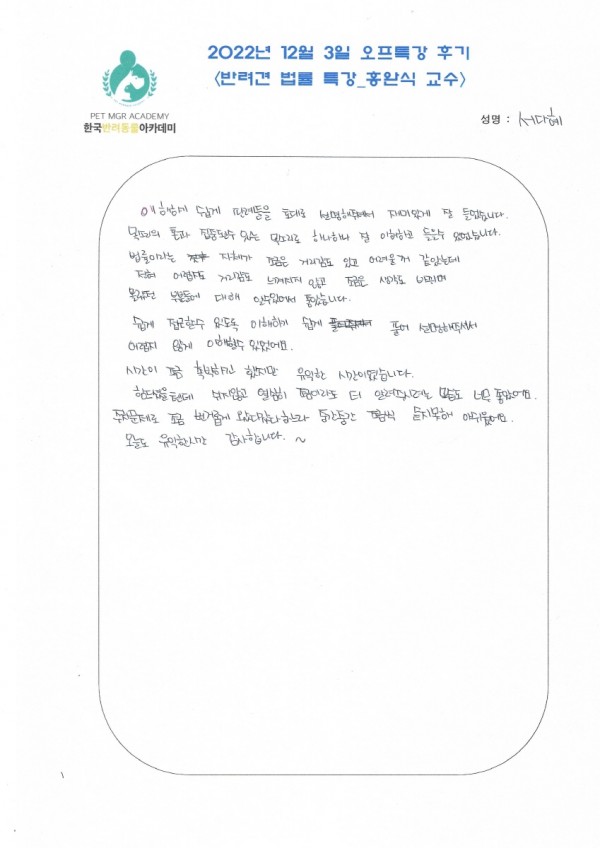 2022년 12월 3일 오프특강 후기
<반려견 법률 특강_홍완식 교수>
PET MGR ACADEMY
한국반려동물아카데미
성명 : 서다혜
이해하기 쉽게 판례들을 토대로 설명해주셔서 재미있게 잘 들었습니다.
목소리의 톤과 집중할수 있는 목소리로 하나하나 잘 이해하고 들을수 있었습니다.
법률이라는 자체가 조금은 거리감도 있고 어려울거 같았는데
전혀 어렵지도 거리감도 느껴지지 않고 조금은 생각도 바뀌며
몰랐던 부분들에 대해 알수있어서 좋았습니다.
쉽게 접근할수 있도록 이해하기 쉽게 풀어 설명해주셔서
어렵지 않게 이해할수 있었어요.
시간이 조금 촉박하긴 했지만 유익한 시간이었습니다.
힘드셨을텐데 쉬지않고 열심히 조금이라도 더 알려주시려는 모습도 너무 좋았어요.
주차문제로 조금 번거롭게 왔다갔다하느라 중간중간 조금씩 듣지못해 아쉬웠어요.
오늘도 유익한시간 감사합니다. ~